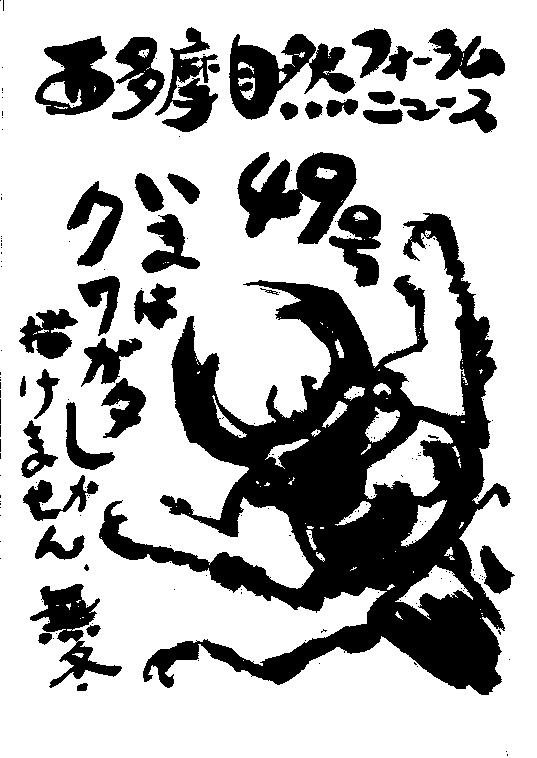 西多摩自然フォーラム
ニュース
49号
いまは
クワガタしか
描けません。